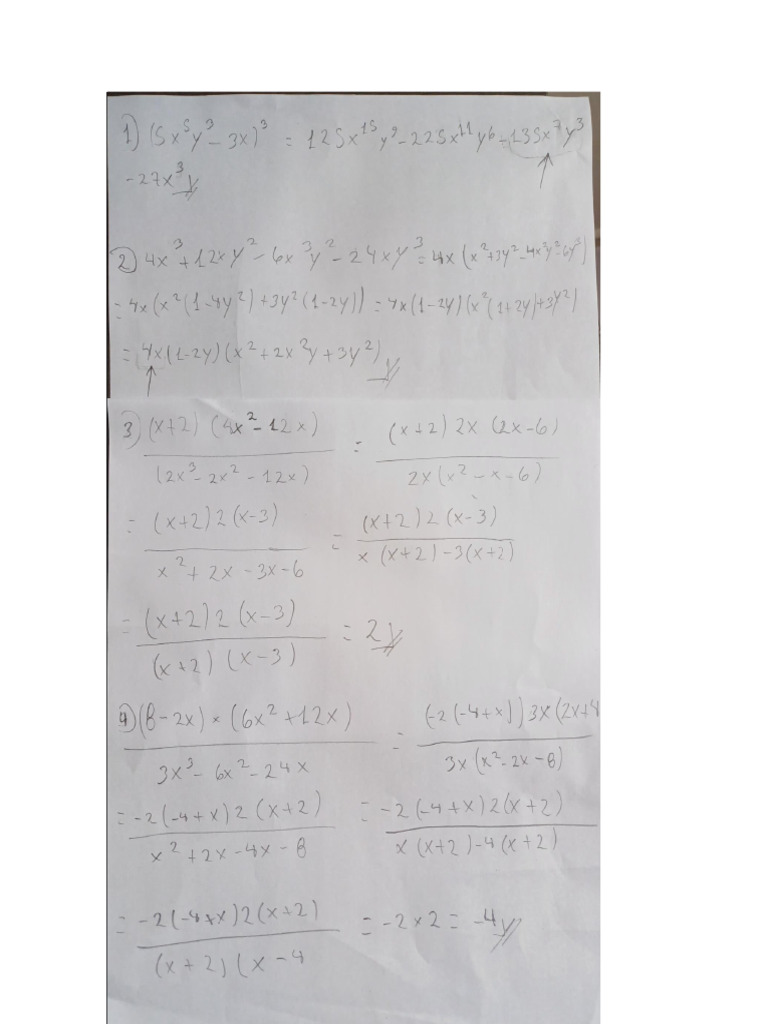 1) (5x⁵y³ - 3x)³ = 125x¹⁵y⁹ - 225x¹¹y⁶ - 135x⁷y³
- 27x³
2) 4x³ + 12xy² - 6x³y² - 24xy³ = 4x(x² + 3y² - 4x²y² - 6y³)
= 4x(x²(1 - 4y²) + 3y²(1 - 2y)) = 4x(1 - 2y)(x²(1 + 2y) + 3y²)
= 4x(1 - 2y)(x² + 2x²y + 3y²)
3) (x+2)(4x² - 12x) / (2x³ - 2x² - 12x) = (x+2)2x(2x-6) / 2x(x² - x - 6)
= (x+2)2(x-3) / x² + 2x - 3x - 6 = (x+2)2(x-3) / x(x+2) - 3(x+2)
= (x+2)2(x-3) / (x+2)(x-3) = 2
4) (8 - 2x) × (6x² + 12x) / 3x³ - 6x² - 24x = (-2(-4+x))3x(2x+4 / 3x(x² - 2x - 8)
= -2(-4+x)2(x+2) / x² + 2x - 4x - 8 = -2(-4+x)2(x+2) / x(x+2) - 4(x+2)
= -2(-4+x)2(x+2) / (x+2)(x-4 = -2×2 = -4